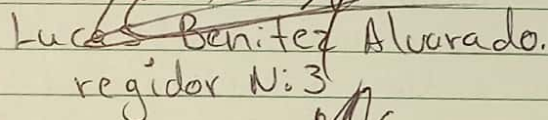 Lucas Benitez Alvarado.
regidor N: 3